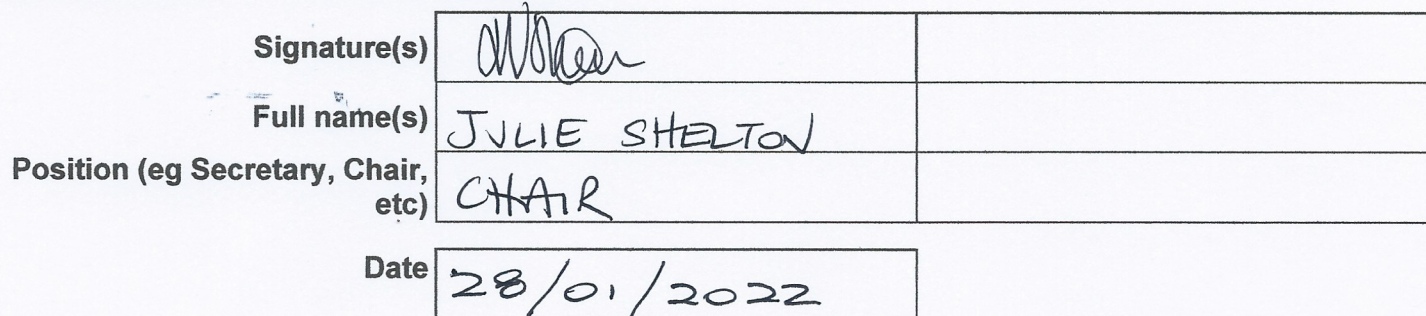 Signature(s)
Full name(s) JULIE SHELTON
Position (eg Secretary, Chair,
etc) CHAIR
Date 28/01/2022